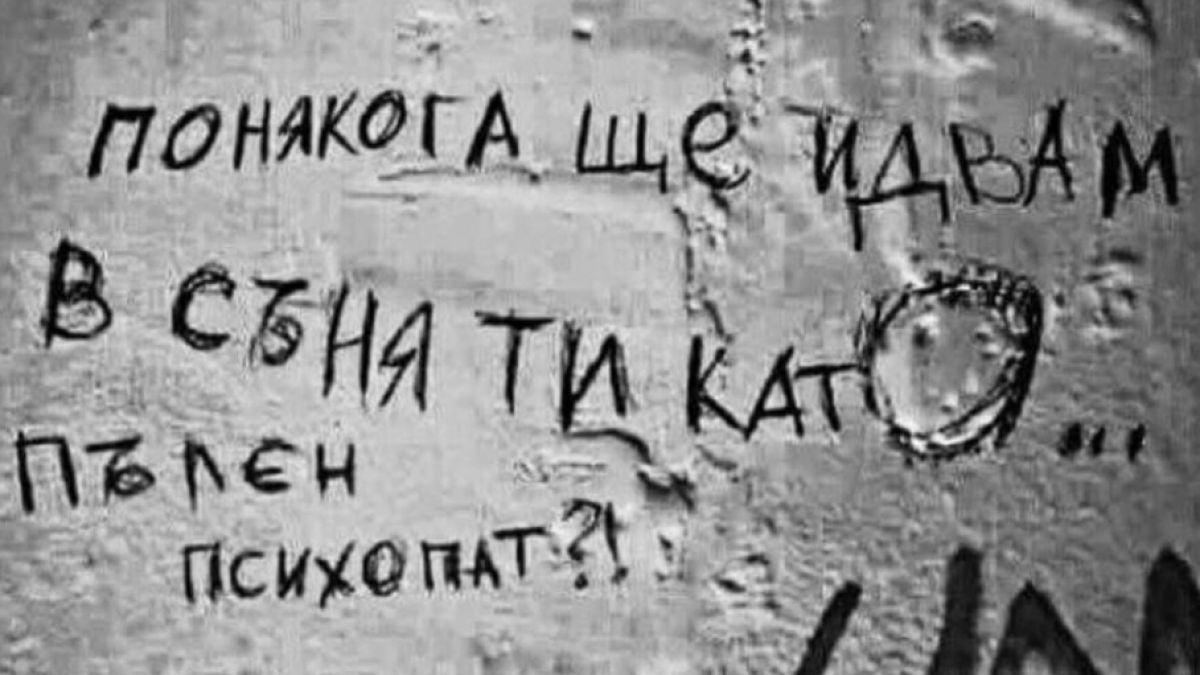 ПОНЯКОГА ЩЕ ИДВАМ
В СЪНЯ ТИ КАТО...
ПЪЛЕН
ПСИХОПАТ?!